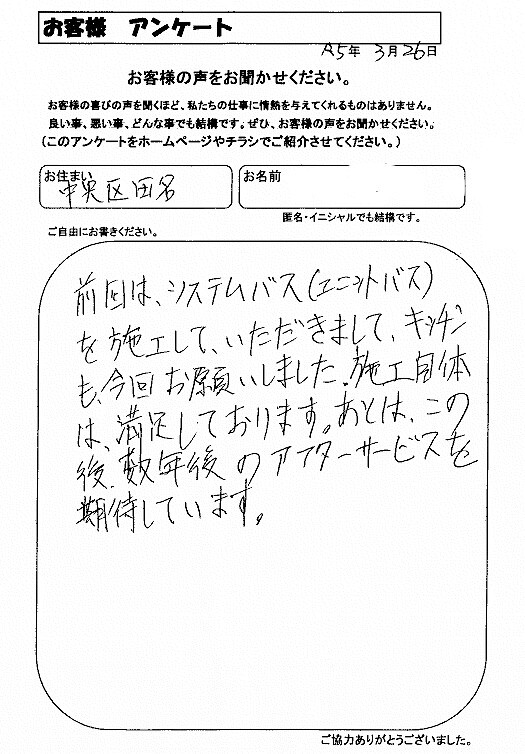 お客様 アンケート
R5年 3月26日
お客様の声をお聞かせください。
お客様の喜びの声を聞くほど、私たちの仕事に情熱を与えてくれるものはありません。
良い事、悪い事、どんな事でも結構です。ぜひ、お客様の声をお聞かせください。
(このアンケートをホームページやチラシでご紹介させてください。)
お住まい
中央区田名
お名前
匿名・イニシャルでも結構です。
ご自由にお書きください。
前回は、システムバス(ユニットバス)
を施工して、いただきまして、キッチン
も、今回お願いしました。施工自体
は、満足しております。あとは、この
後、数年後のアフターサービスを
期待しています。
ご協力ありがとうございました。